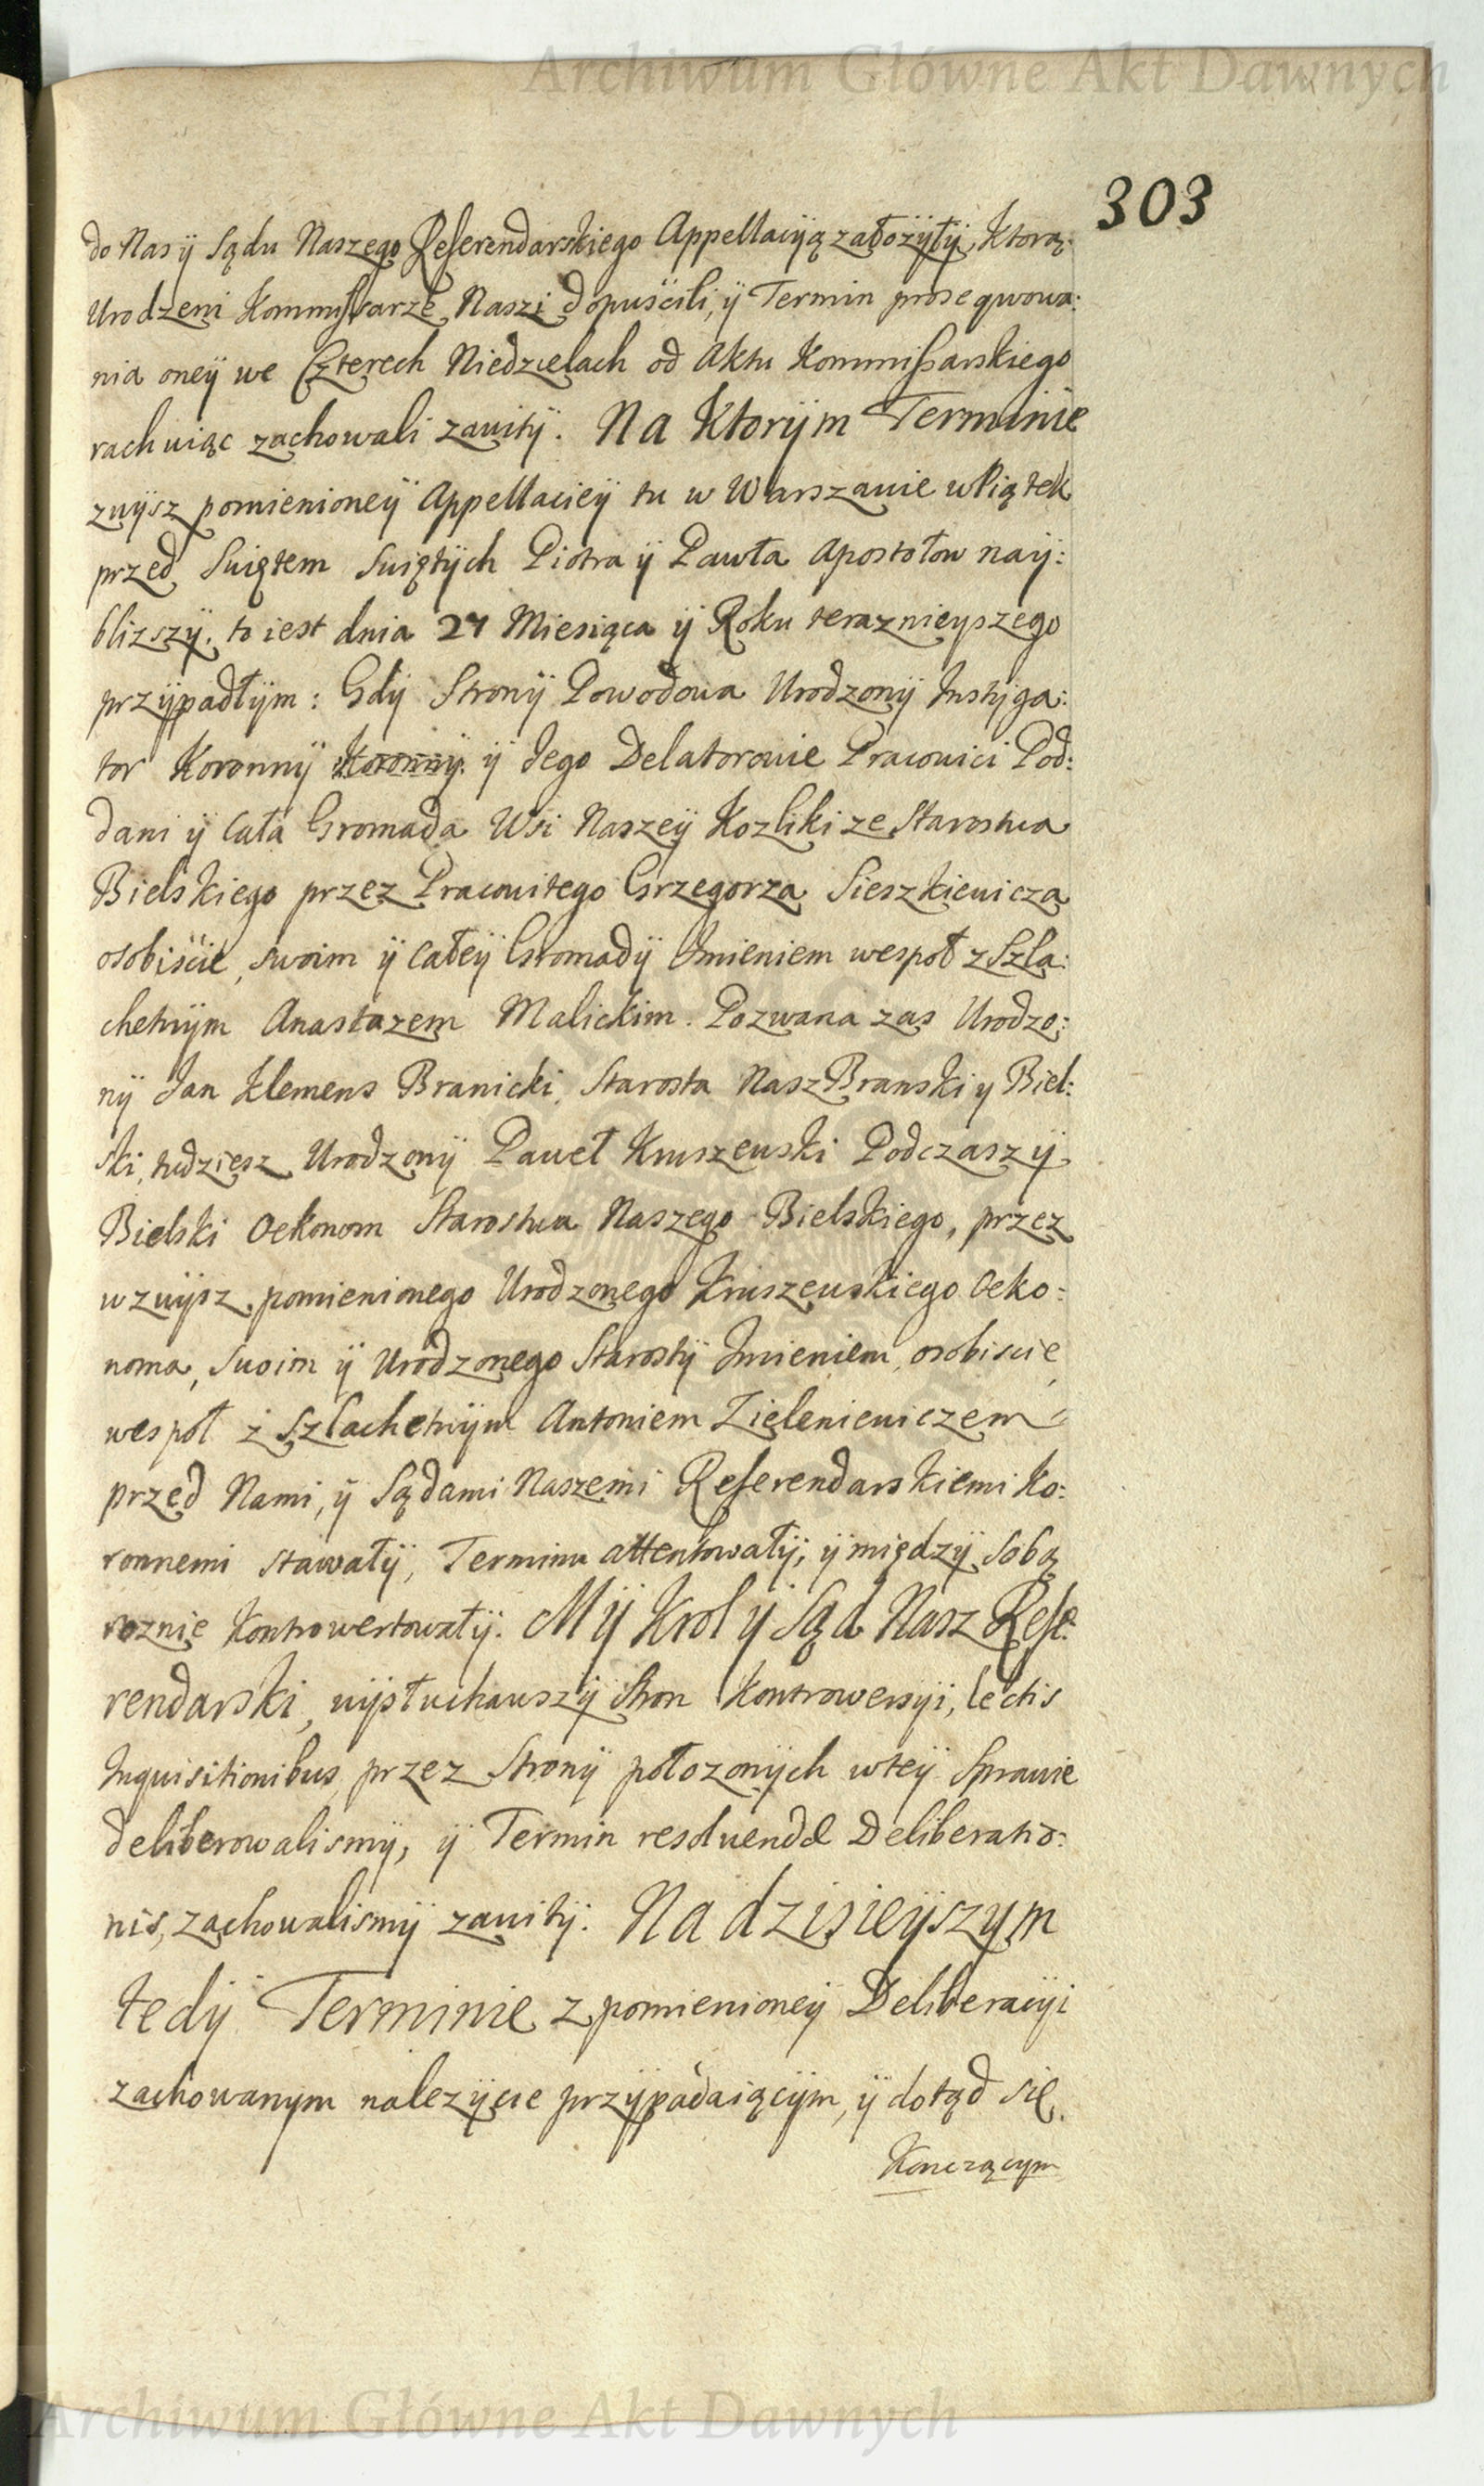 Archiwum Główne Akt Dawnych
303
do Nas ÿ Sądu Naszego Referendarskiego Appellacÿią założÿłÿ, Ktorą
Urodzeni Kommissarze Naszi dopuścili, ÿ Termin proseqwowa:
nia oneÿ we Czterech Niedzielach od Aktu Kommissarskiego
rachuiąc zachowali zawitÿ. Na Ktorÿm Terminie
zwÿsz pomienioneÿ Appellacieÿ tu w Warszawie w Piątek
przed Swiętem Swiętÿch Piotra ÿ Pawła Apostołow naÿ:
blizszÿ, to iest dnia 27 Miesiąca ÿ Roku teraznieyszego
przÿpadłÿm: Gdÿ Stronÿ Powodowa Urodzonÿ Instÿga:
tor Koronnÿ Koronnÿ ÿ Jego Delatorowie Pracowici Pod:
dani ÿ Cała Gromada Wsi Naszeÿ Kozliki ze Starostwa
Bielskiego przez Pracowitego Grzegorza Sieszkiewicza
osobiście, swoim ÿ Całeÿ Gromadÿ Imieniem wespoł z Szla:
chetnÿm Anastazem Malickim. Pozwana zas Urodzo:
nÿ Jan Klemens Branicki, Starosta Nasz Branski y Biel:
ski, tudziesz Urodzonÿ Paweł Kruszewski Podczaszÿ
Bielski Oekonom Starostwa Naszego Bielskiego, przez
wzwÿsz pomienionego Urodzonego Kruszewskiego Oeko:
noma, Swoim ÿ Urodzonego Starostÿ Imieniem, osobiscie,
wespoł z Szlachetnÿm Antoniem Zieleniewiczem
przed Nami, ÿ Sądami Naszemi Referendarskiemi Ko:
ronnemi stawałÿ, Terminu attentowałÿ, ÿ międzÿ Sobą
roznie Kontrowertowałÿ. Mÿ Krol ÿ Sąd Nasz Refe:
rendarski, wÿsłuchawszÿ Stron Kontrowersÿi, lectis
Inquisitionibus przez Stronÿ położonÿch w teÿ Sprawie
deliberowalismÿ, ÿ Termin resolvendæ Deliberatio:
nis, zachowalismÿ zawitÿ. Na dzisieÿszym
tedÿ Terminie z pomienioneÿ Deliberacÿi
zachowanym należÿcie przÿpadaiącÿm, ÿ dotąd się
Konczącym
Archiwum Główne Akt Dawnych